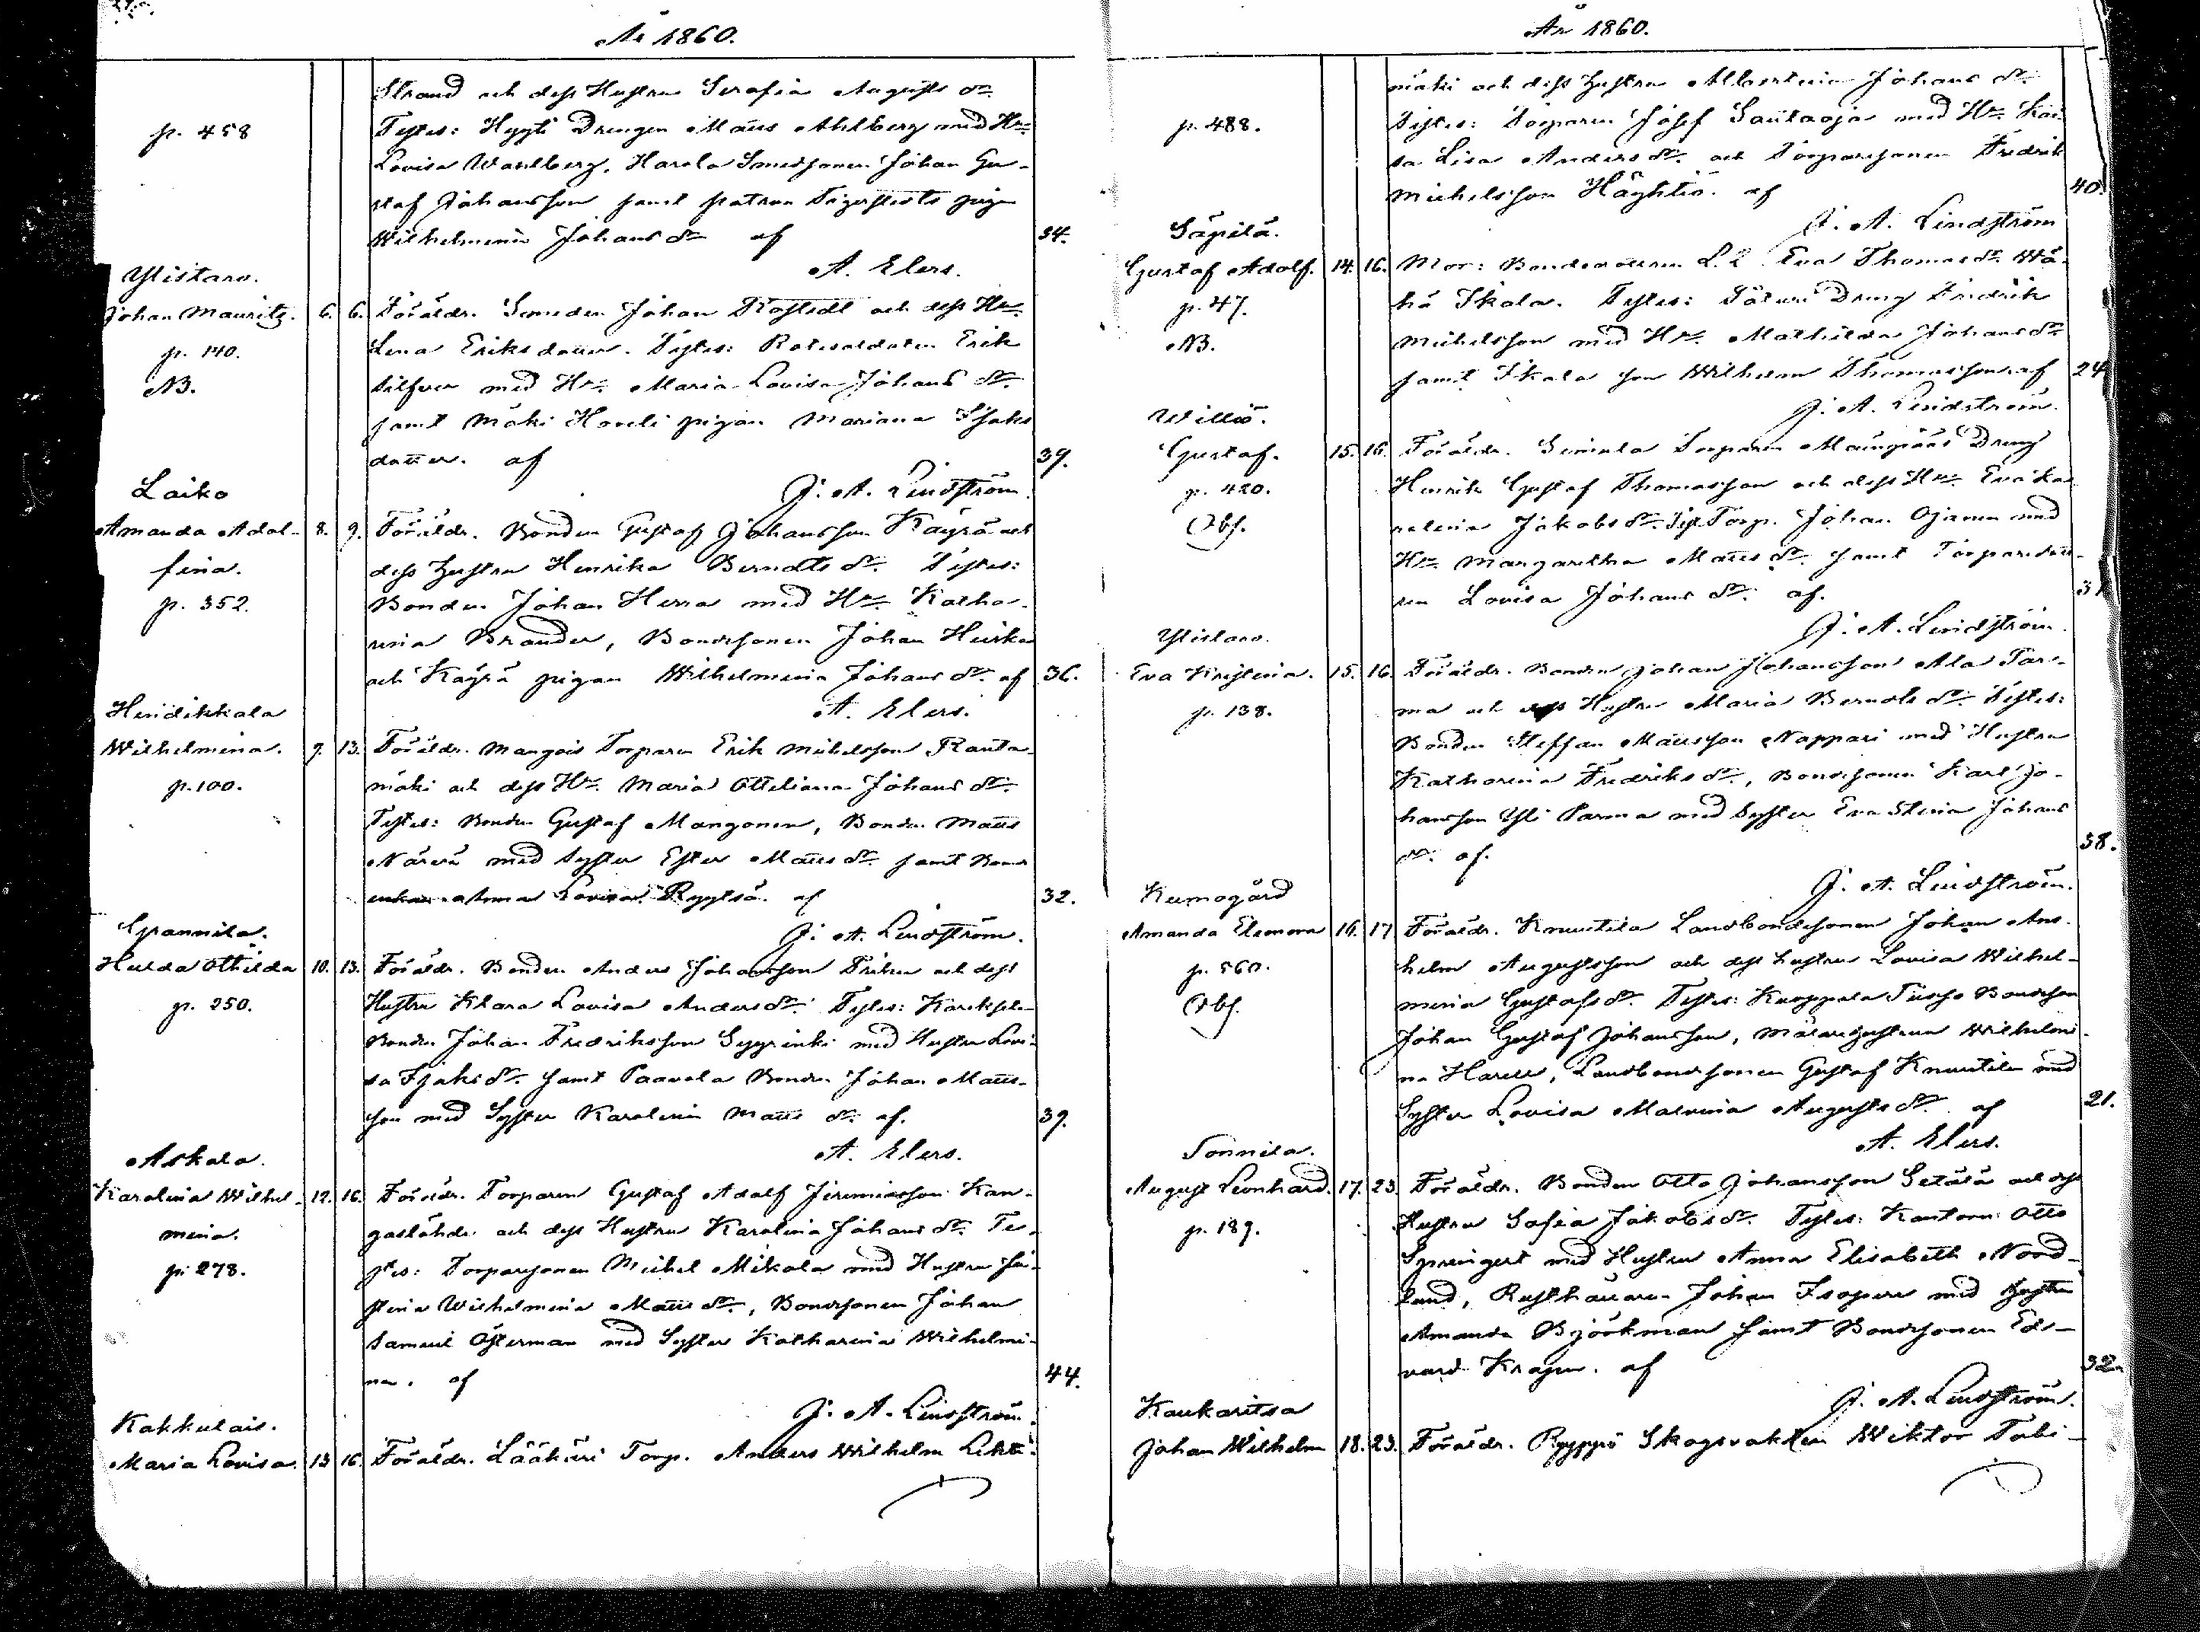 År 1860.
Strand och dess Hustru Serafia Augusts dr.
p. 458
Testes: Hygti Drengen Matts Ahlberg med Hu
Lovisa Wahlberg, Harola Smedsonen Johan Gu-
staf Johansson samt patron pigan
Wilhelmina Johans dr af 34.
A. Elers.
Ylistaro.
Johan Mauritz. 6. 6. Föräldr. Smeden Johan och dess Hu
p. 140. Lena Eriksdotter. Testes: Rotesoldaten Erik
NB. Silfver med Hu Maria Lovisa Johans dr
samt Mäki Haveli pigan Mariana Isaks
dotter. af 39.
J. A. Lindström.
Laiko
Amanda Adol- 8. 9. Föräldr. Bonden Gustaf Johansson Käyrä och
fina. dess Hustru Henrika Berndts dr. Testes:
p. 352. Bonden Johan Herra med Hu Katha-
rina Brander, Bondesonen Johan
och Käyrä pigan Wilhelmina Johans dr. af 36.
A. Elers.
Heidikkala
Wilhelmina. 9. 13. Föräldr. Torparen Erik Michelsson Ranta-
p. 100. mäki och dess Hu Maria Johans dr.
Testes: Bonden Gustaf Mangonen, Bonden Matts
Närvä med Syster Ester Matts dr. samt Bond
enkan Anna Lovisa af 32.
J. A. Lindström.
Grannila.
Hulda Othilda 10. 13. Föräldr. Bonden Anders Johansson och dess
p. 250. Hustru Klara Lovisa Anders dr. Testes:
Bonden Johan Fredriksson Sypinki med Hustru Lovi-
sa Isaks dr. samt Paavola Bonden Johan Matts-
son med Syster Karolina Matts dr. af. 39.
A. Elers.
Askala.
Karolina Wilhel- 12. 16. Föräldr. Torparen Gustaf Adolf Jeremiasson Kan-
mina. gaslähde och dess Hustru Karolina Johans dr. Te-
p. 278. stes: Torparsonen Michel Mikola med Hustru
Wilhelmina Matts dr., Bondesonen Johan
Samuel Österman med Syster Katharina Wilhelmi-
na. af 44.
J. A. Lindström.
Kakkulais.
Maria Lovisa. 13 16. Föräldr. Lääkäri Torp. Anders Wilhelm
År 1860.
mäki och dess Hustru Albertina Johans dr.
p. 488. Testes: Torparen Josef Santaoja med Hu Kai-
sa Lisa Anders dr. och Torparsonen Fredrik
Michelsson Häyhtiö. af 40.
J. A. Lindström
Säpilä.
Gustaf Adolf. 14. 16. Mor: Bondedottern Eva Thomas dr. Wä-
p. 47. hä Ikala. Testes: Dreng Fredrik
NB. Michelsson med Hu Mathilda Johans dr
samt Ikala son Wilhelm Thomasson af 24
J. A. Lindström.
Williö.
Gustaf. 15. 16. Föräldr. Torparen Dreng
p. 420. Henrik Gustaf Thomasson och dess Hu Eva Ka-
Obs. rolina Jakobs dr. Test. Torp. Johan Ojanen med
Hu Margaretha Matts dr. samt Torparedott-
ren Lovisa Johans dr. af. 31
J. A. Lindström.
Ylistaro.
Eva Kristina. 15. 16. Föräldr. Bonden Johan Johansson Ala Par-
p. 138. ma och dess Hustru Maria Berndts dr. Testes:
Bonden Steffan Mattsson Nappari med Hustru
Katharina Fredriks dr., Bondesonen Karl Jo-
hansson Yli Parma med Syster Eva Stina Johans
dr. af. 38.
J. A. Lindström.
Kumogård
Amanda Eleonora 16. 17 Föräldr. Knuutila Landbondesonen Johan Ans-
p. 560. helm Augustsson och dess hustru Lovisa Wilhel-
Obs. mina Gustafs dr. Testes: Kuoppala Bondeson
Johan Gustaf Johansson, Målarehustrun Wilhelmi-
na Harell, Landbondesonen Gustaf Knuutila med
Syster Lovisa Malvina Augusts dr. af 21.
A. Elers.
Sonnila.
August Leonhard. 17. 23. Föräldr. Bonden Otto Johansson Setälä och dess
p. 189. Hustru Sofia Jakobs dr. Testes: Kantorn Otto
Springert med Hustru Anna Elisabeth Nord-
lund, Rusthållaren Johan Isopere med Hustru
Amanda Björkman samt Bondesonen Ed-
vard Krapu. af 32.
J. A. Lindström.
Kaukaritsa
Johan Wilhelm 18. 23. Föräldr. Ryyppö Skogsvakten Wiktor Tobi-